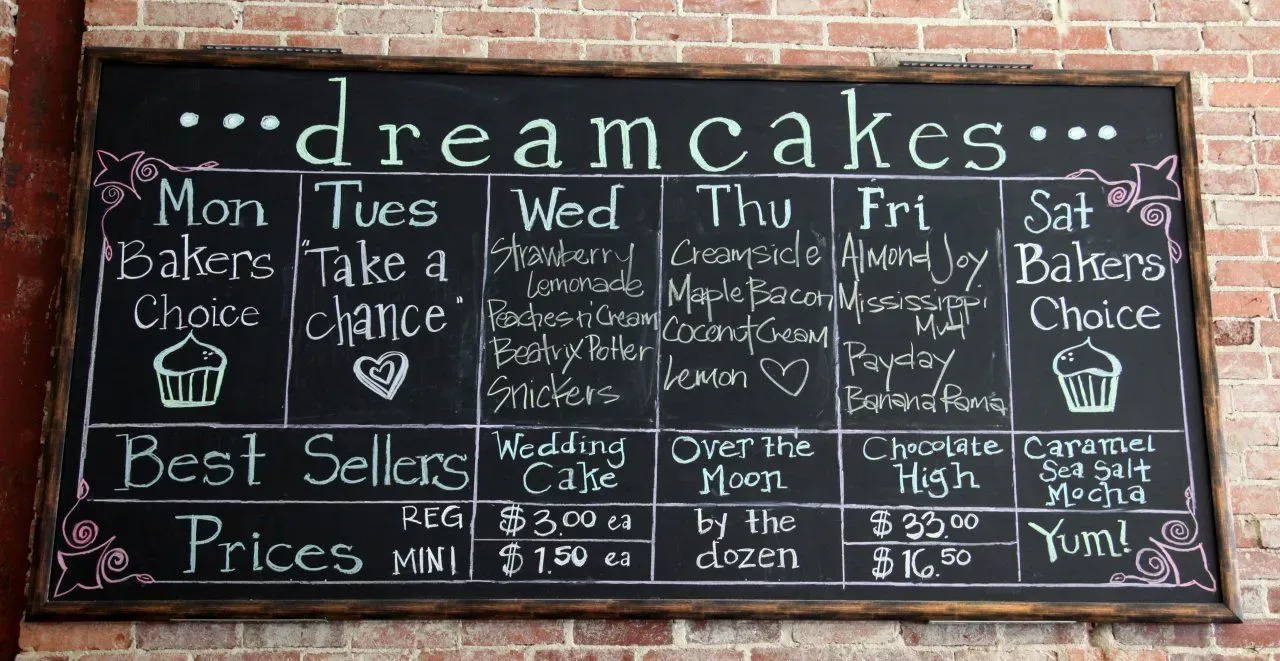 dreamcakes
Mon
Bakers
Choice
Tues
"Take a
chance"
Wed
Strawberry
Lemonade
Peaches n' Cream
Beatrix Potter
Snickers
Thu
Creamsicle
Maple Bacon
Coconut Cream
Lemon
Fri
Almond Joy
Mississippi
Mud
Payday
Banana Rama
Sat
Bakers
Choice
Best Sellers
Wedding
Cake
Over the
Moon
Chocolate
High
Caramel
Sea Salt
Mocha
Prices
REG
MINI
$3.00 ea
$1.50 ea
by the
dozen
$33.00
$16.50
Yum!